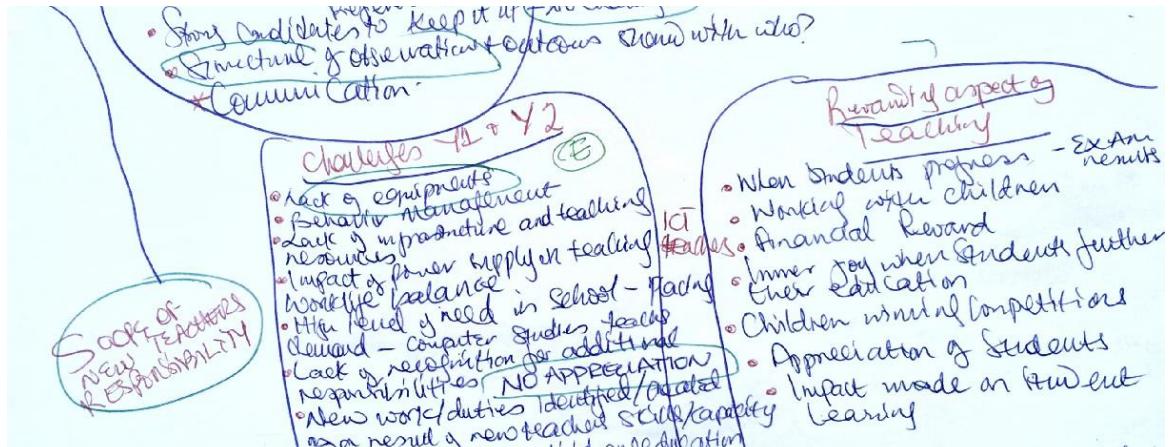 • Strong Candidates to keep it up
• Structure of observation + outcomes shared with who?
* Communication.
Challenges Y1 + Y2
E
• Lack of equipments
• Behavior Management
• Lack of infrastructure and teaching
resources
• Impact of power supply on teaching
Worklife balance
• High level of need in School - placing
demand - computer studies teacher
• Lack of recognition for additional
responsibilities NO APPRECIATION
• New work/duties identified/created
as a result of new teacher skills/capacity
education
ICT
teaches
SCOPE OF
NEW TEACHERS
RESPONSIBILITY
Rewarding aspect of
Teaching
• When Students progress - Exam
results
• Working with children
• Financial Reward
• Inner joy when Students further
their education
• Children winning Competitions
• Appreciation of Students
• Impact made on student
learning